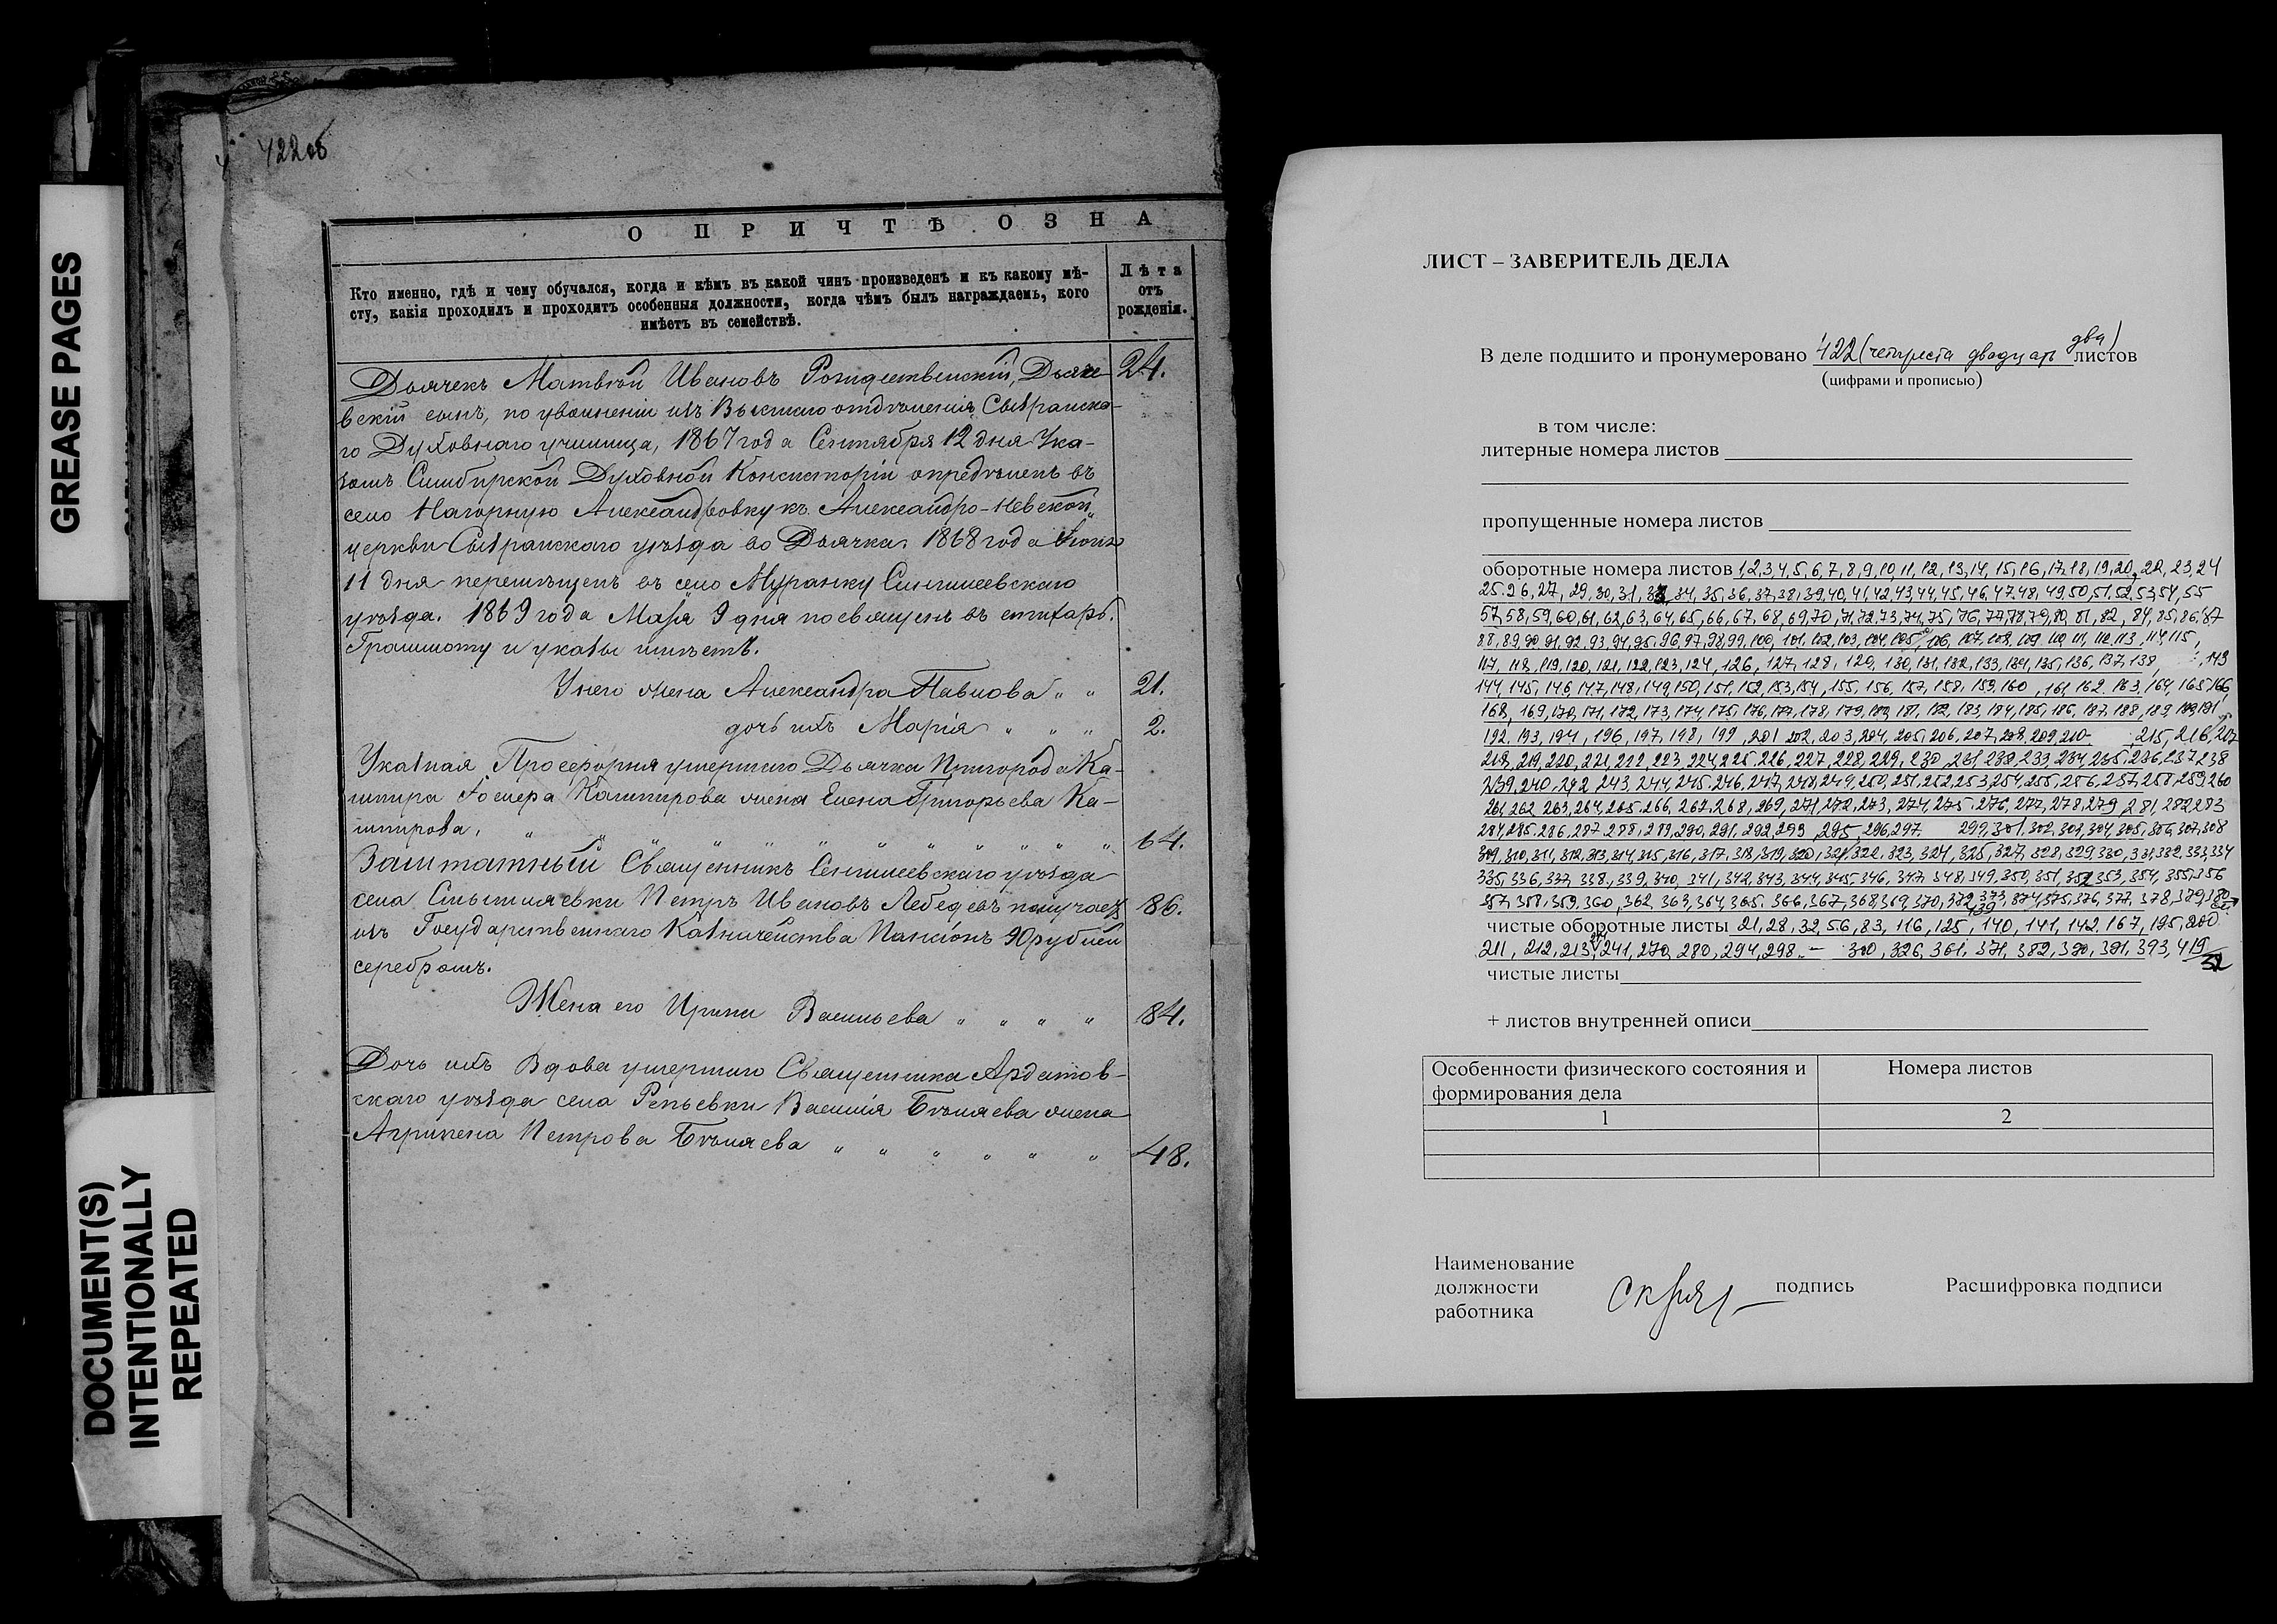 GREASE PAGES
DOCUMENT(S)
INTENTIONALLY
REPEATED
422об
О ПРИЧТѢ ОЗНА
Кто именно, гдѣ и чему обучался, когда и кѣмъ въ какой чинъ произведенъ и къ какому мѣ-
сту, какія проходилъ и проходитъ особенныя должности, когда чѣмъ былъ награждаемъ, кого
имѣетъ въ семействѣ.
Лѣта
отъ
рожденія.
Дьячекъ Матвѣй Ивановъ Рождественскій, Дьяче- 24.
вскій сынъ, по увольненіи изъ Высшаго отдѣленія Сызранска-
го Духовнаго училища, 1867 года Сентября 12 дня Ука-
зомъ Симбирской Духовной Консисторіи опредѣленъ въ
село Нагорную Александровку къ Александро-Невской
церкви Сызранскаго уѣзда во Дьячка. 1868 года Іюня
11 дня перемѣщенъ въ село Муранку Сенгилеевскаго
уѣзда. 1869 года Мая 9 дня посвященъ въ стихарь.
Грамоту и указы имѣетъ.
У него жена Александра Павлова " " 21.
дочь ихъ Марія " " " 2.
Указная Просфорня умершаго Дьячка Пригорода Ка-
шпира Кашпирова жена Елена Григорьева Ка-
шпирова. " " " " " " " " " " 64.
Заштатный Священникъ Сенгилеевскаго уѣзда
села Петръ Ивановъ Лебедевъ получаетъ 86.
изъ Государственнаго Казначейства Пансіонъ 90 рублей
серебромъ.
Жена его Ирина Васильева " " " " 84.
Дочь ихъ Вдова умершаго Священника Ардатов-
скаго уѣзда села Репьевки Василія Бѣляева жена
Агрипена Петрова Бѣляева " " " " " " 48.
ЛИСТ – ЗАВЕРИТЕЛЬ ДЕЛА
В деле подшито и пронумеровано 422 (четыреста двадцать два) листов
(цифрами и прописью)
в том числе:
литерные номера листов
пропущенные номера листов
оборотные номера листов 1,2,3,4,5,6,7,8,9,10,11,12,13,14,15,16,17,18,19,20,22,23,24
25,26,27,29,30,31,33,34,35,36,37,38,39,40,41,42,43,44,45,46,47,48,49,50,51,52,53,54,55
57,58,59,60,61,62,63,64,65,66,67,68,69,70,71,72,73,74,75,76,77,78,79,80,81,82,84,85,86,87
88,89,90,91,92,93,94,95,96,97,98,99,100,101,102,103,104,105,106,107,108,109,110,111,112,113,114,115,
117,118,119,120,121,122,123,124,126,127,128,129,130,131,132,133,134,135,136,137,138, ,143
144,145,146,147,148,149,150,151,152,153,154,155,156,157,158,159,160,161,162,163,164,165,166,
168,169,170,171,172,173,174,175,176,177,178,179,180,181,182,183,184,185,186,187,188,189,190,191
192,193,194,196,197,198,199,201,202,203,204,205,206,207,208,209,210 ,215,216,217
218,219,220,221,222,223,224,225,226,227,228,229,230,231,232,233,234,235,236,237,238
239,240,242,243,244,245,246,247,248,249,250,251,252,253,254,255,256,257,258,259,260
261,262,263,264,265,266,267,268,269,271,272,273,274,275,276,277,278,279,281,282,283
284,285,286,287,288,289,290,291,292,293,295,296,297 299,301,302,303,304,305,306,307,308
309,310,311,312,313,314,315,316,317,318,319,320,321,322,323,324,325,327,328,329,330,331,332,333,334
335,336,337,338,339,340,341,342,343,344,345,346,347,348,349,350,351,352,353,354,355,356
357,358,359,360,362,363,364,365,366,367,368,369,370,372,373,374,375,376,377,378,379,380
чистые оборотные листы 21,28,32,56,83,116,125,139,140,141,142,167,195,200
211,212,213,214,241,270,280,294,298 – 300,326,361,371,382,390,391,393,419
32
чистые листы
+ листов внутренней описи
Особенности физического состояния и
формирования дела
Номера листов
1 2
Наименование
должности
работника
подпись
Расшифровка подписи